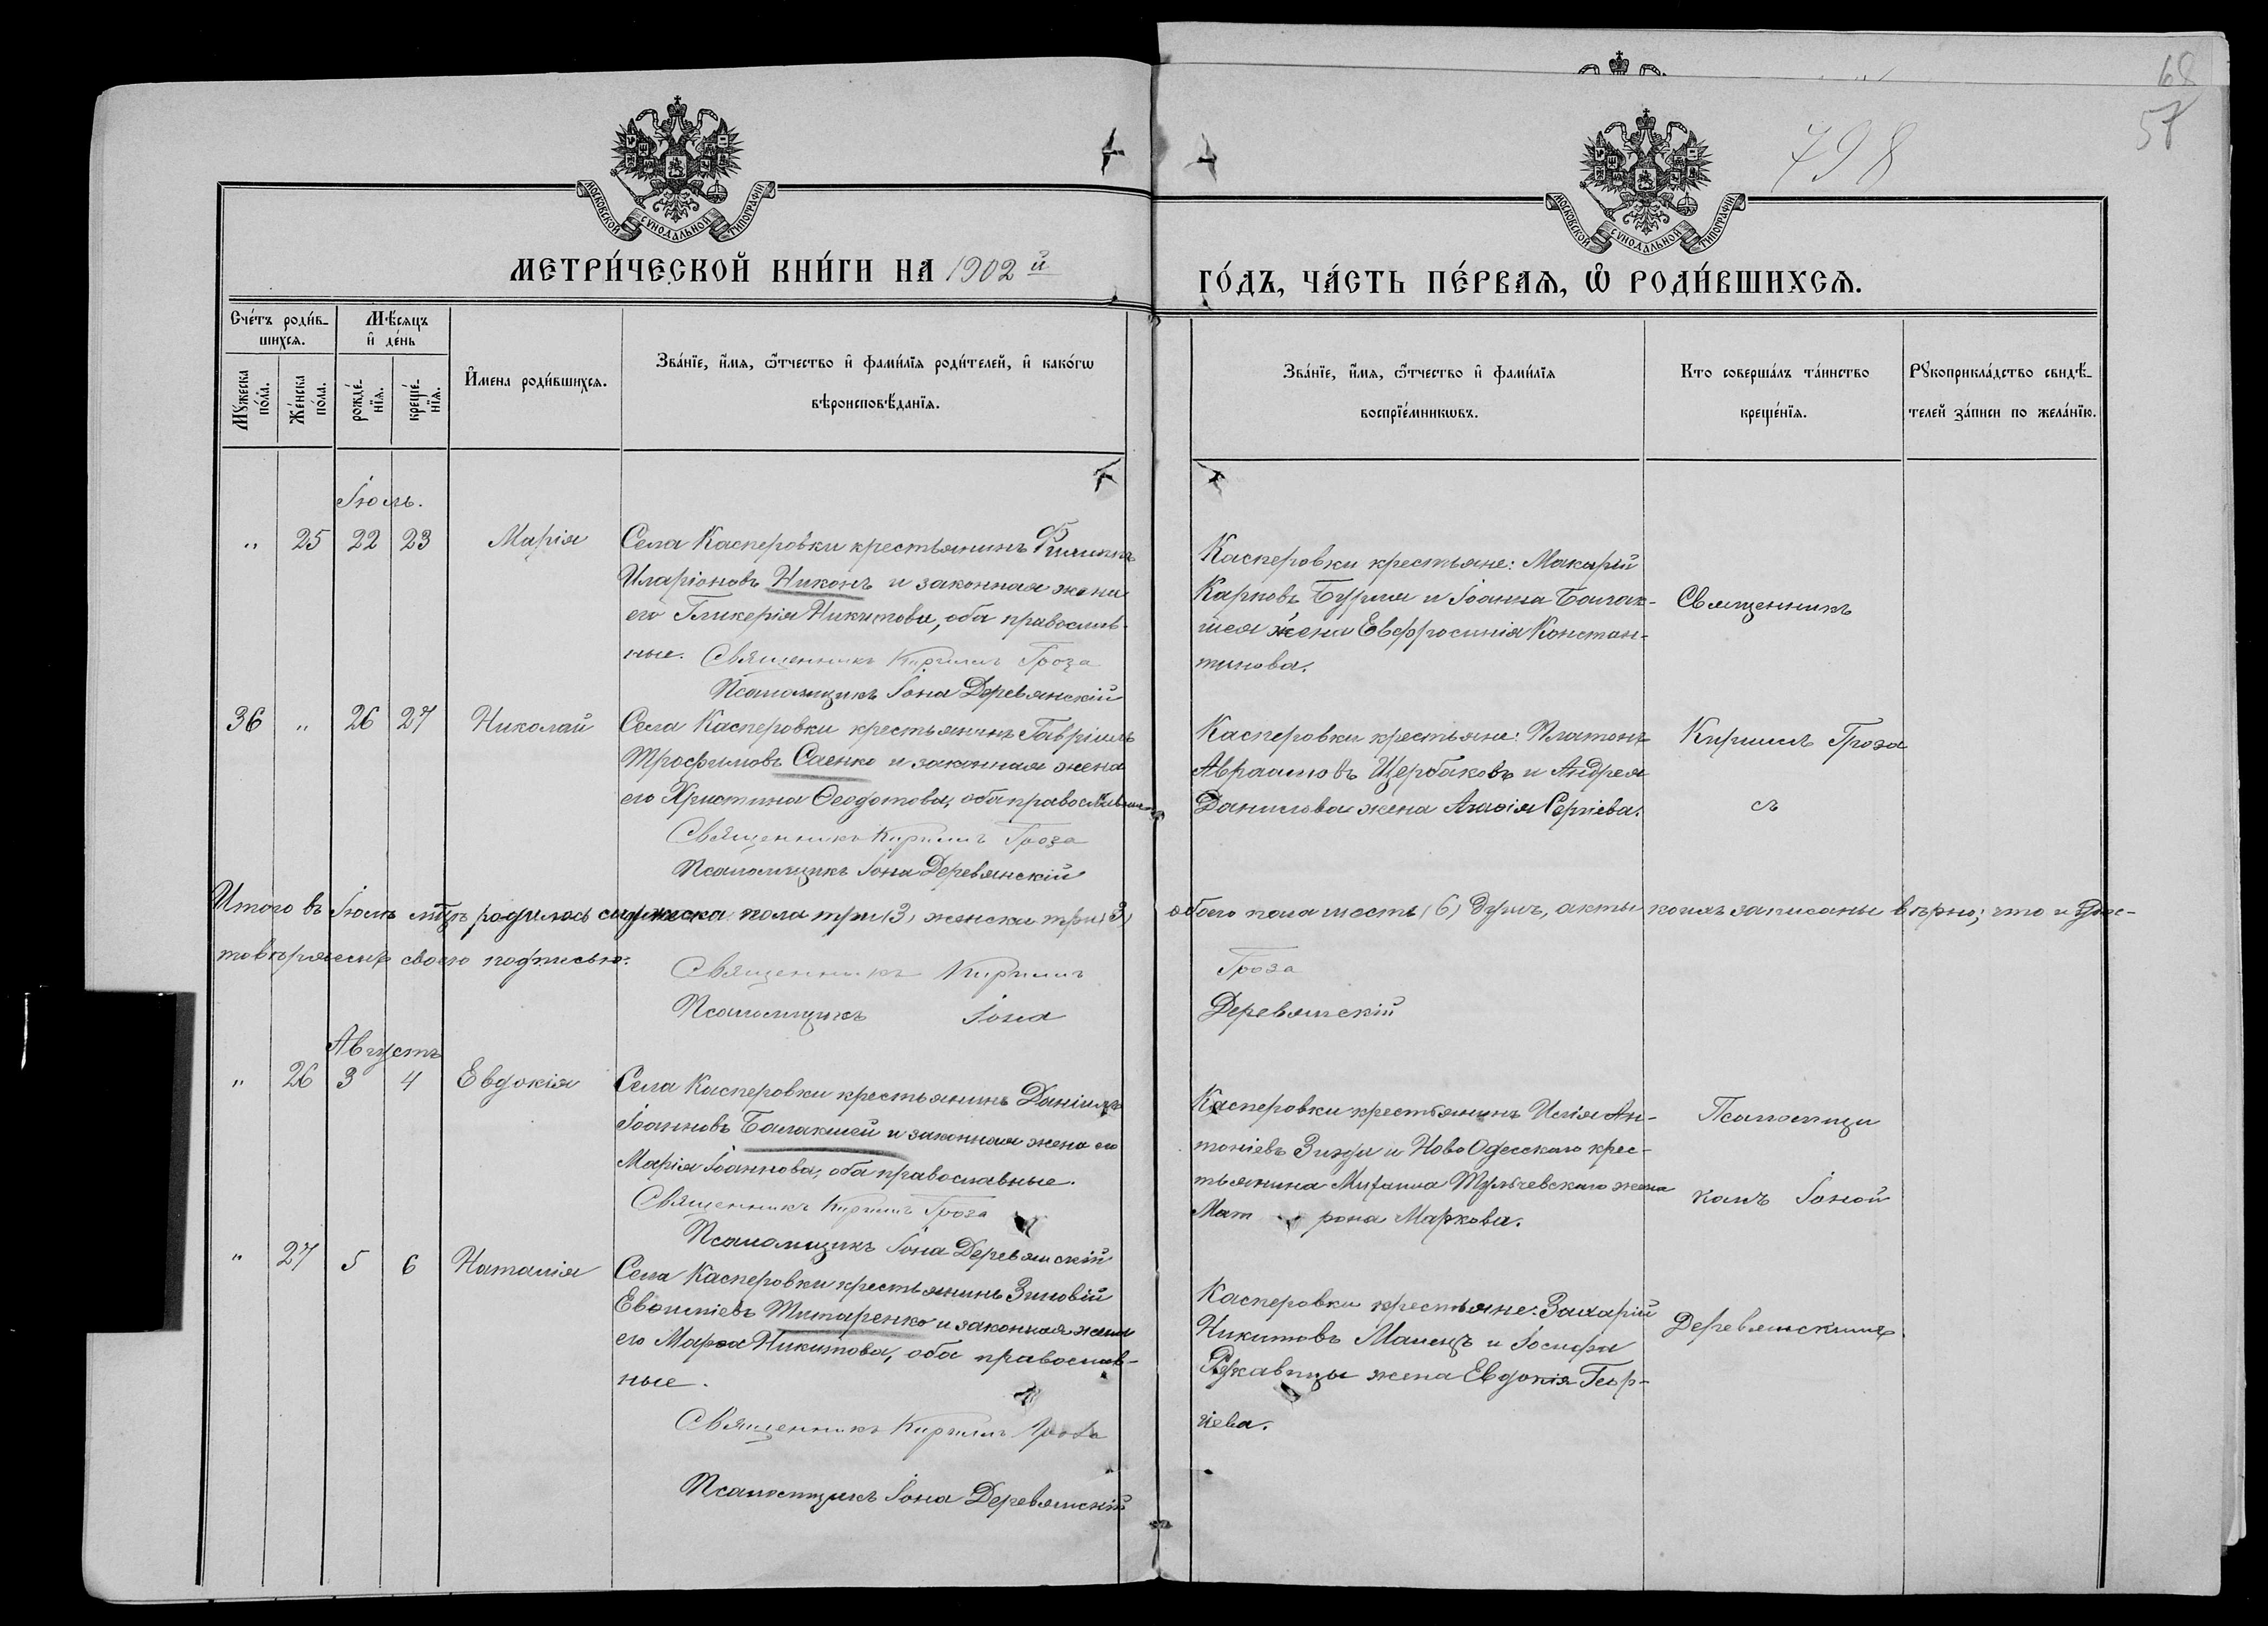 68
57
798
МОСКОВСКОЙ СѴНОДАЛЬНОЙ ТИПОГРАФІИ
МОСКОВСКОЙ СѴНОДАЛЬНОЙ ТИПОГРАФІИ
МЕТРИ́ЧЕСКОЙ КНИ́ГИ НА 1902 й
ГО́ДЪ, ЧА́СТЬ ПЕ́РВАѦ, Ѡ҆ РОДИ́ВШИХСѦ.
Сче́тъ роди́в-
шихсѧ.
Мѣ́сѧцъ
и҆ де́нь
Мꙋ́жеска
по́ла.
Же́нска
по́ла.
рожде́-
нїѧ.
креще́-
нїѧ.
И҆мена роди́вшихсѧ.
Зва́нїе, и҆́мѧ, ѻ҆́тчество и҆ фами́лїѧ роди́телей, и҆ како́гѡ
вѣроисповѣ́данїѧ.
Зва́нїе, и҆́мѧ, ѻ҆́тчество и҆ фами́лїѧ
воспрїе́мникѡвъ.
Кто соверша́лъ та́инство
креще́нїѧ.
Рꙋкоприкла́дство свидѣ́-
телей за́писи по жела́нїю.
Іюль.
" 25 22 23 Марія
Села Касперовки крестьянинъ Филиппъ
Иларіоновъ Никонъ и законная жена
его Гликерія Никитова, оба православ-
ные. Священникъ Кириллъ Гроза
Псаломщикъ Іона Деревянскій
Касперовки крестьяне: Макарій
Карповъ Бурма и Іоанна Балак-
шея жена Евфросинія Констан-
тинова.
Священникъ
36 " 26 27 Николай
Села Касперовки крестьянинъ Гавріилъ
Трофимовъ Саенко и законная жена
его Христина Ѳеодотова, оба православные
Священникъ Кириллъ Гроза
Псаломщикъ Іона Деревянскій
Касперовки крестьяне: Платонъ
Авраамовъ Щербаковъ и Андрея
Данилова жена Агаѳія Сергіева.
Кириллъ Гроза
съ
Итого въ Іюлѣ мцѣ родилось мужеска пола три (3) женска три (3) обоего пола шесть (6) душъ, акты коихъ записаны вѣрно; что и удос-
товѣряемъ своею подписью:
Священникъ Кириллъ Гроза
Псаломщикъ Іона Деревянскій
Августъ
" 26 3 4 Евдокія
Села Касперовки крестьянинъ Даніилъ
Іоанновъ Балакшей и законная жена его
Марія Іоаннова, оба православные.
Священникъ Кириллъ Гроза
Псаломщикъ Іона Деревянскій
Касперовки крестьянинъ Илія Ан-
тоніевъ и Ново Одесскаго крес-
тьянина Михаила Тульчевскаго жена
Мат рона Маркова.
Псаломщи
комъ Іоной
" 27 5 6 Наталія
Села Касперовки крестьянинъ Зиновій
Евѳиміевъ Титаренко и законная жена
его Марѳа Никитова, оба православ-
ные.
Священникъ Кириллъ Гроза
Псаломщикъ Іона Деревянскій
Касперовки крестьяне: Захарій
Никитовъ Малецъ и Іосифа
Ржавицы жена Евдокія Геор-
гіева.
Деревянскимъ.